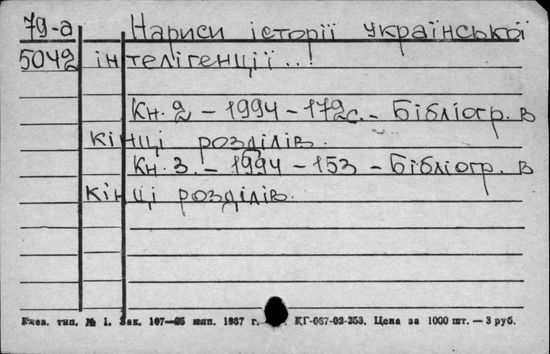 79-а Нариси історії української
5042 інтелігенції..!
Кн. 2 – 1994 – 172с. – Бібліогр. в
кінці розділів.
Кн. 3. – 1994 – 153 – Бібліогр. в
кінці розділів.
тип. № 1. Зак. 167—85 мил. 1967 г. КГ-067-02-253. Цена за 1000 шт. — 3 руб.